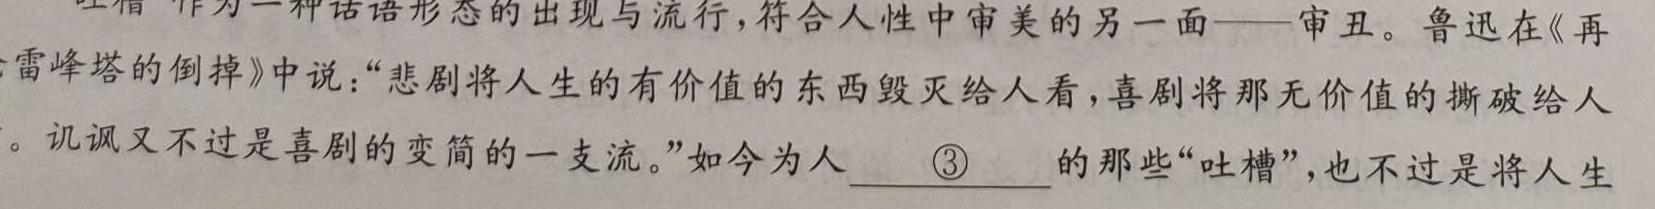 吐槽”作为一种话语形态的出现与流行,符合人性中审美的另一面——审丑。鲁迅在《再
雷峰塔的倒掉》中说:“悲剧将人生的有价值的东西毁灭给人看,喜剧将那无价值的撕破给人
。讥讽又不过是喜剧的变简的一支流。”如今为人 ③ 的那些“吐槽”,也不过是将人生